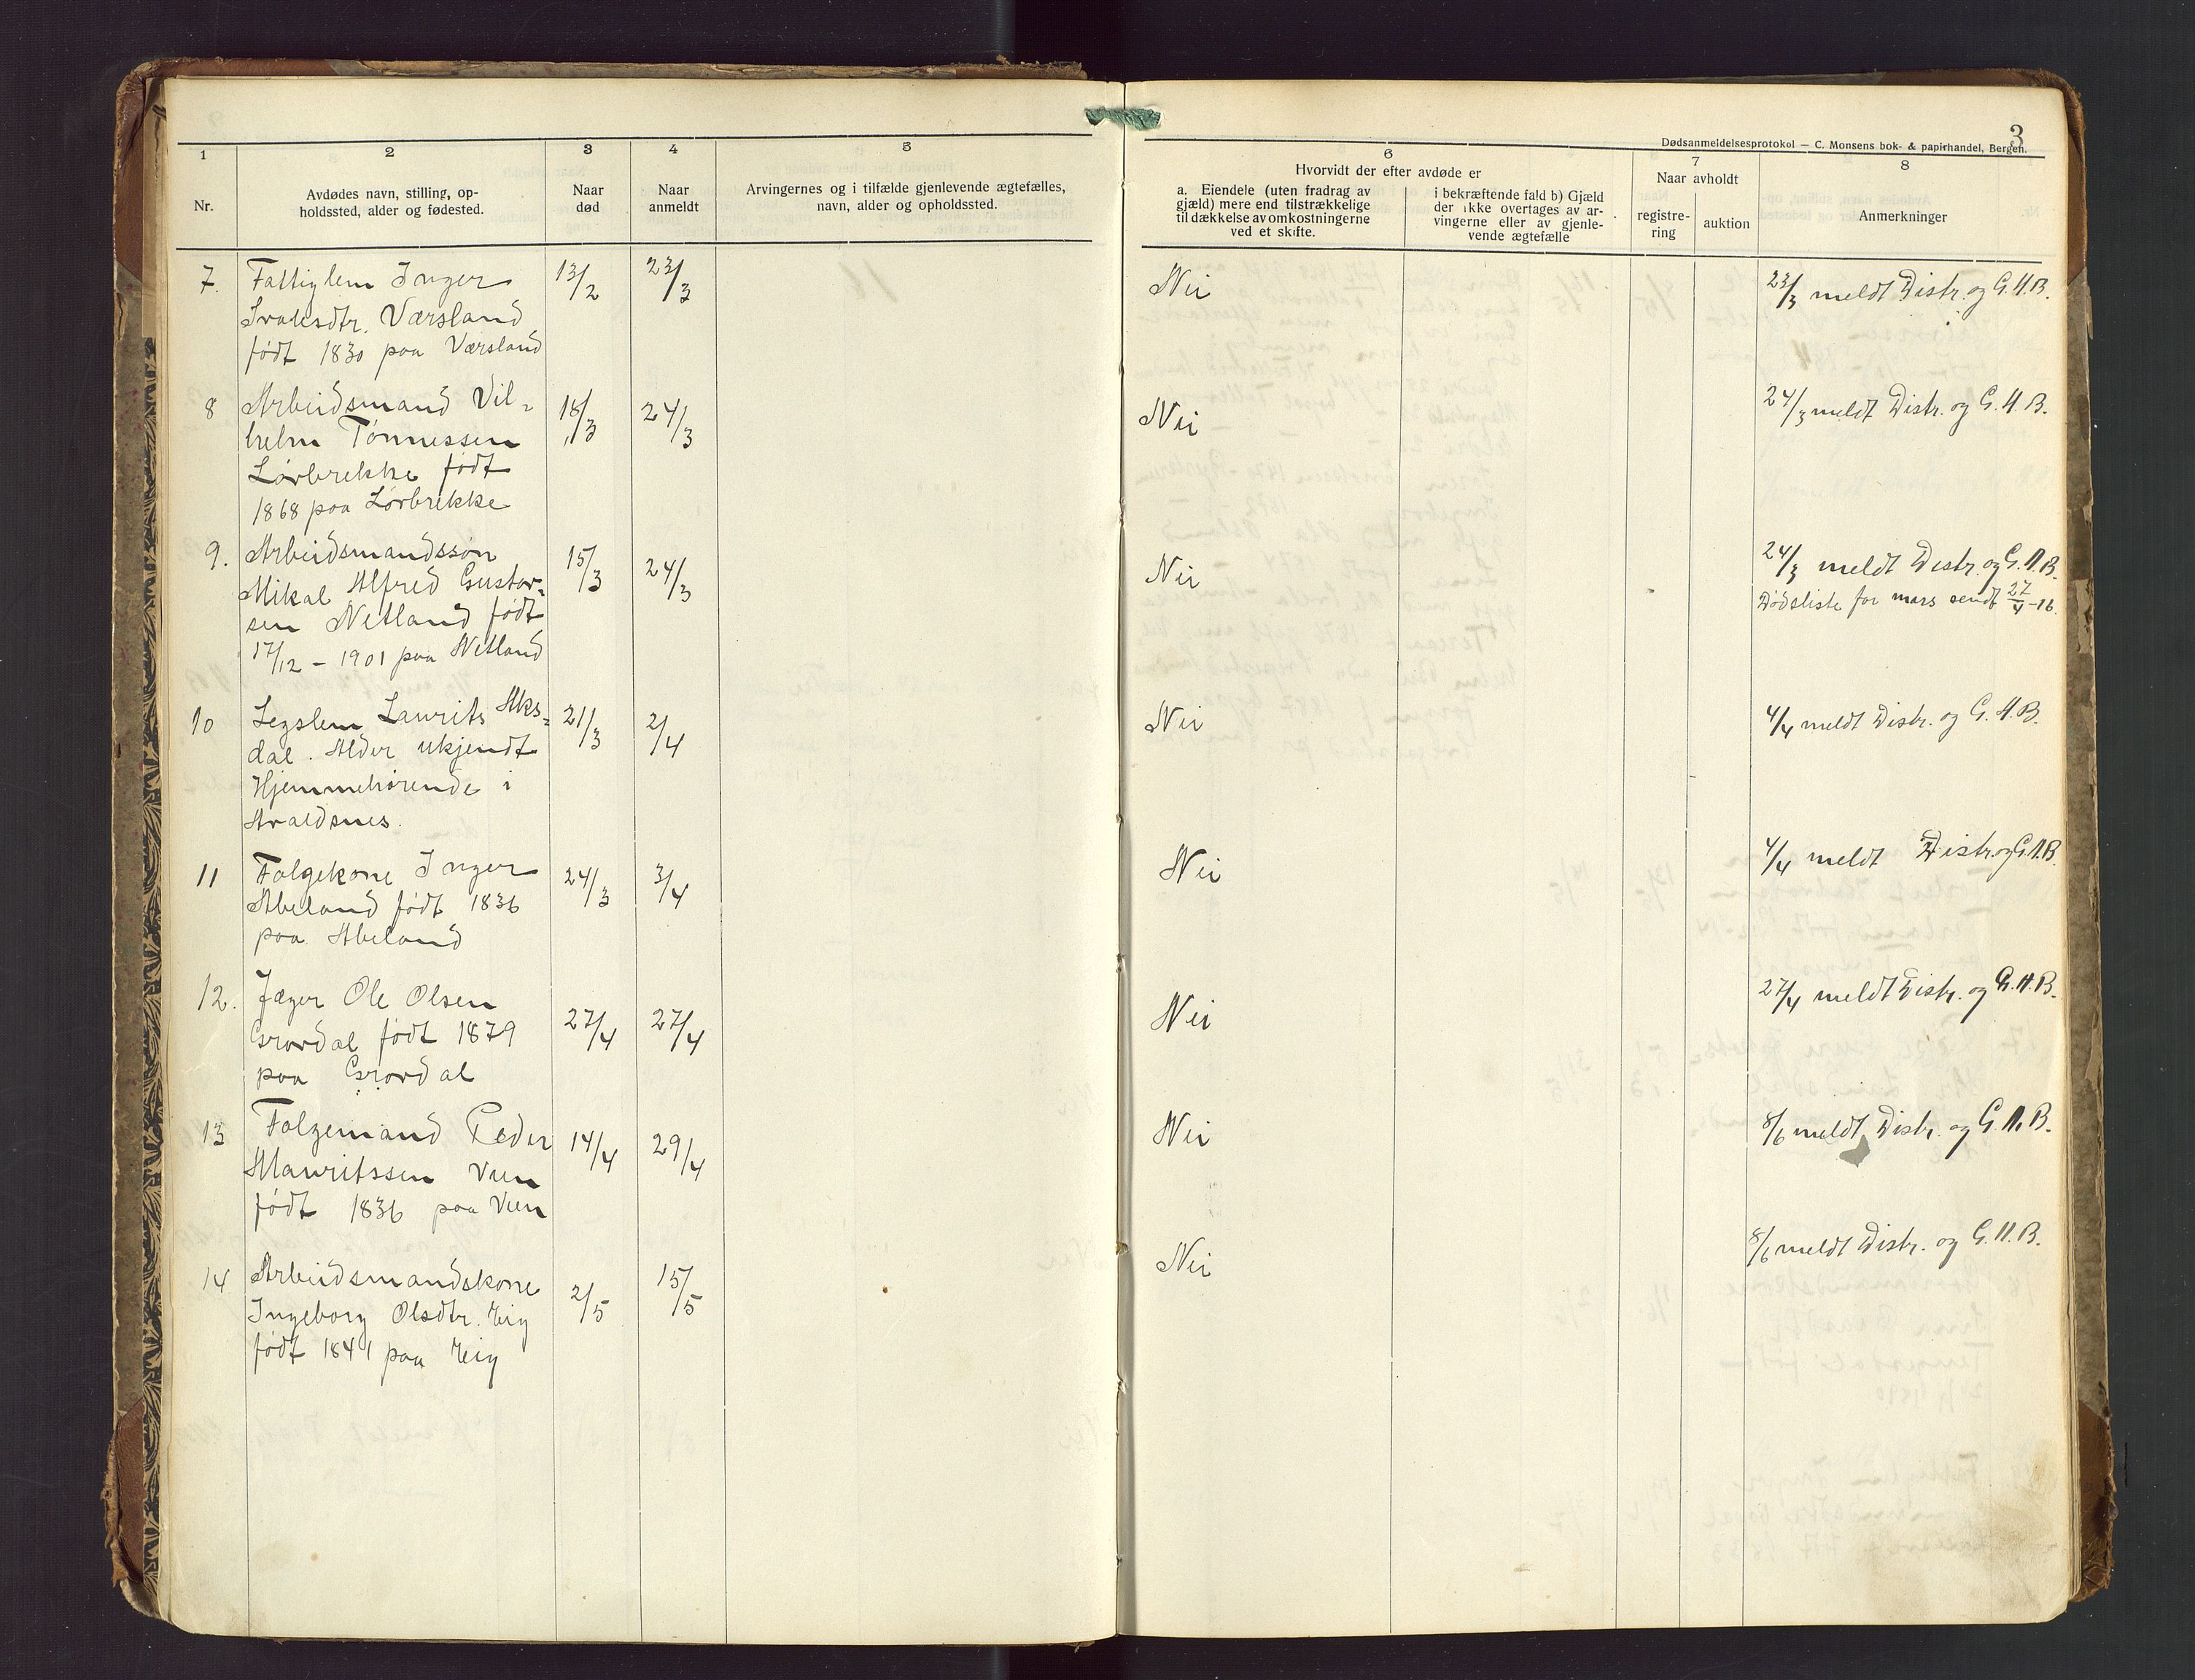 3
Dødsanmeldelsesprotokol — C. Monsens bok- & papirhandel, Bergen.
1
2
3
4
5
6
7
8
Nr.
Avdødes navn, stilling, op-
holdssted, alder og fødested.
Naar
død
Naar
anmeldt
Arvingernes og i tilfælde gjenlevende ægtefælles,
navn, alder og opholdssted.
Hvorvidt der efter avdøde er
a. Eiendele (uten fradrag av
gjæld) mere end tilstrækkelige
til dækkelse av omkostningerne
ved et skifte.
i bekræftende fald b) Gjæld
der ikke overtages av ar-
vingerne eller av gjenle-
vende ægtefælle
Naar avholdt
registre-
ring
auktion
Anmerkninger
7. Fattiglem Inger 13/2 23/3 Nei 23/3 meldt Distr. og G.H.B.
Værsland
født 1830 paa Værsland
8 Arbeidsmand Vil- 18/3 24/3 Nei 24/3 meldt Distr. og G.H.B.
helm Tønnessen
Lørbrekke født
1868 paa Lørbrekke
9. Arbeidsmandssøn 15/3 24/3 Nei 24/3 meldt Distr. og G.H.B.
Mikal Alfred Gustav- Dødsliste for mars sendt 27/4-16.
sen Netland født
17/12 - 1901 paa Netland
10 Legslem Laurits Aks- 21/3 2/4 Nei 4/4 meldt Distr. og G.H.B.
dal. Alder ukjendt
Hjemmehørende i
Avaldsnes.
11 Folgekone Inger 24/3 3/4 Nei 4/4 meldt Distr. og G.H.B.
Abeland født 1836
paa Abeland
12. Jæger Ole Olsen 27/4 27/4 Nei 27/4 meldt Distr. og G.H.B.
født 1879
paa
13 Folgemand Peder 14/4 29/4 Nei 8/6 meldt Distr. og G.H.B.
Mauritssen
født 1836 paa
14 Arbeidsmandskone 2/5 15/5 Nei 8/6 meldt Distr. og G.H.B.
Ingeborg Olsdtr.
født 1841 paa